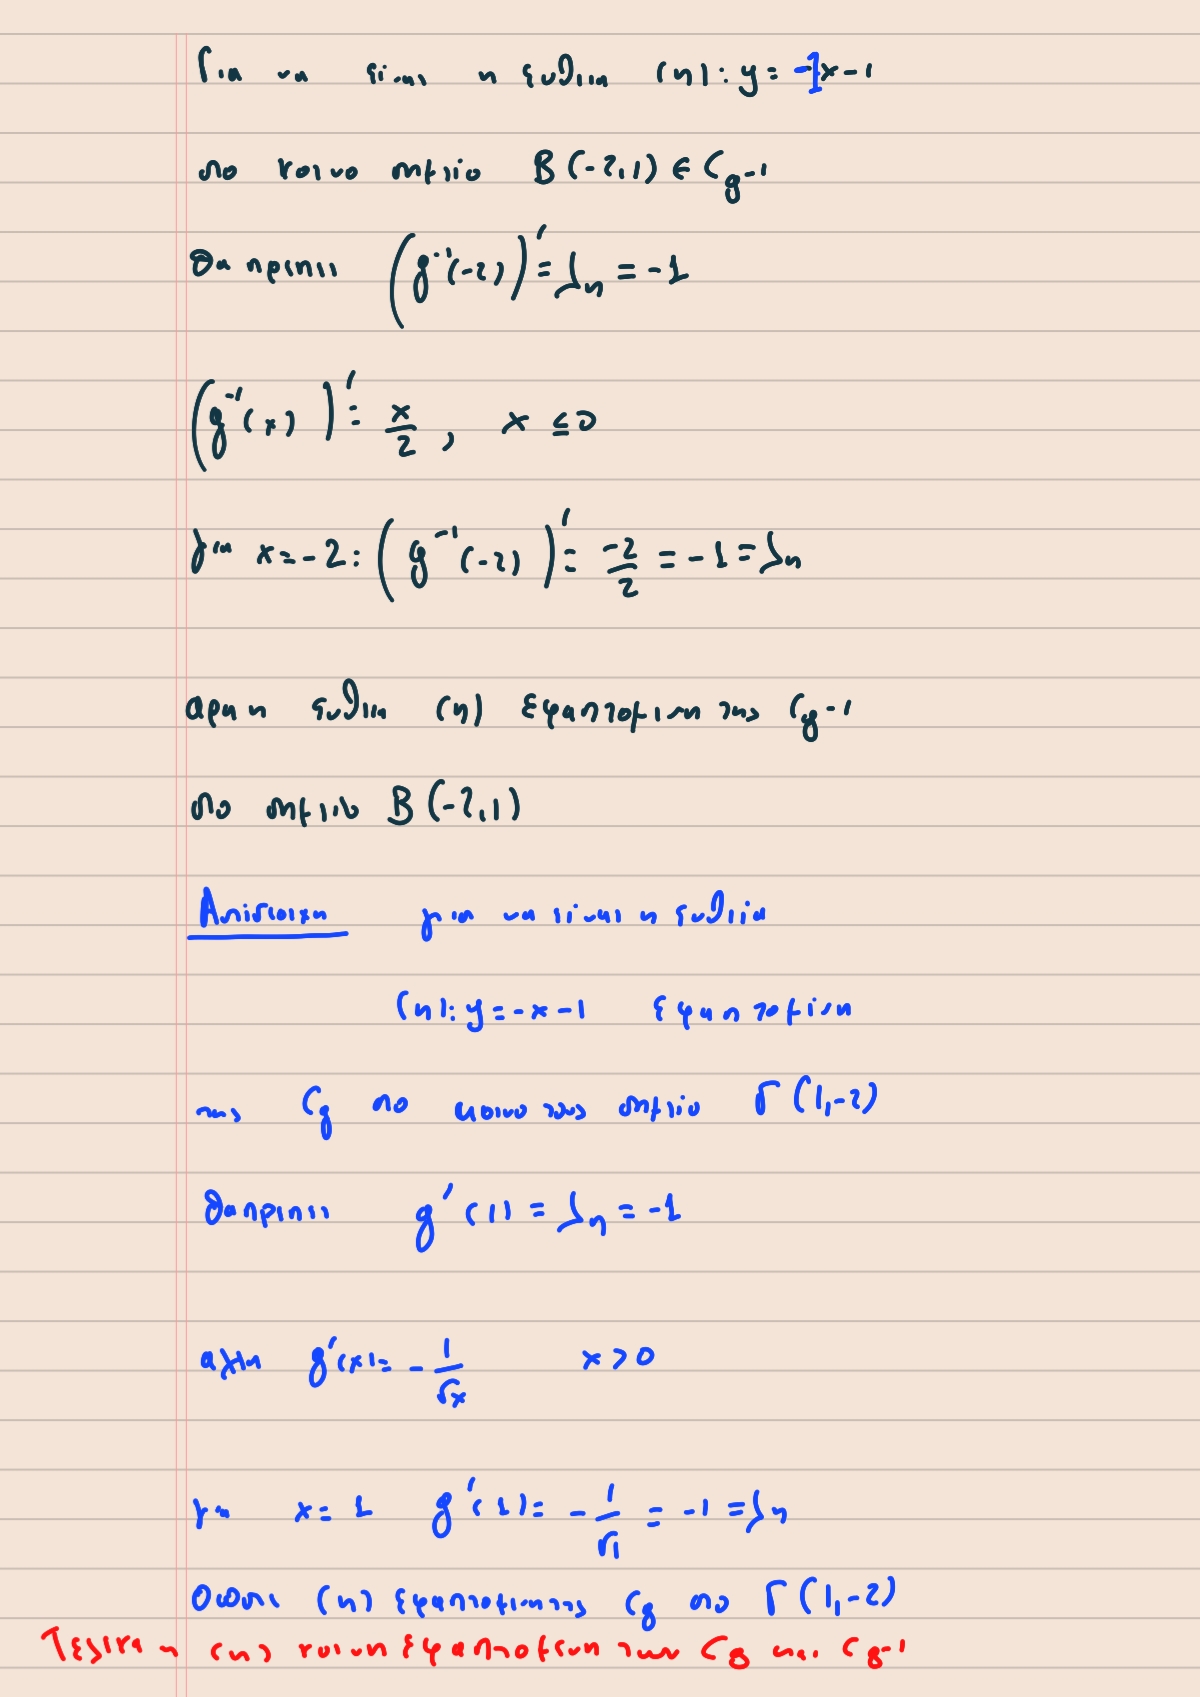 Για να είναι η ευθεία (η): y = -1x-1
στο κοινο σημείο B(-2,1) ∈ C_{g^{-1}}
θα πρεπει (g^{-1}(-2))' = λ_η = -1
(g^{-1}(x))' = x/2, x ≤ 0
για x = -2: (g^{-1}(-2))' = -2/2 = -1 = λ_η
αρα η ευθεια (η) εφαπτομενη της C_{g^{-1}}
στο σημειο B(-2,1)
Αντιστοιχα για να είναι η ευθεία
(η): y = -x-1 εφαπτομενη
της C_g στο κοινο τους σημείο Γ(1,-2)
θα πρεπει g'(1) = λ_η = -1
αλλα g'(x) = -1/√x x > 0
για x = 1 g'(1) = -1/√1 = -1 = λ_η
οποτε (η) εφαπτομενη της C_g στο Γ(1,-2)
Τελικα η (η) κοινη εφαπτομενη των C_g και C_{g^{-1}}